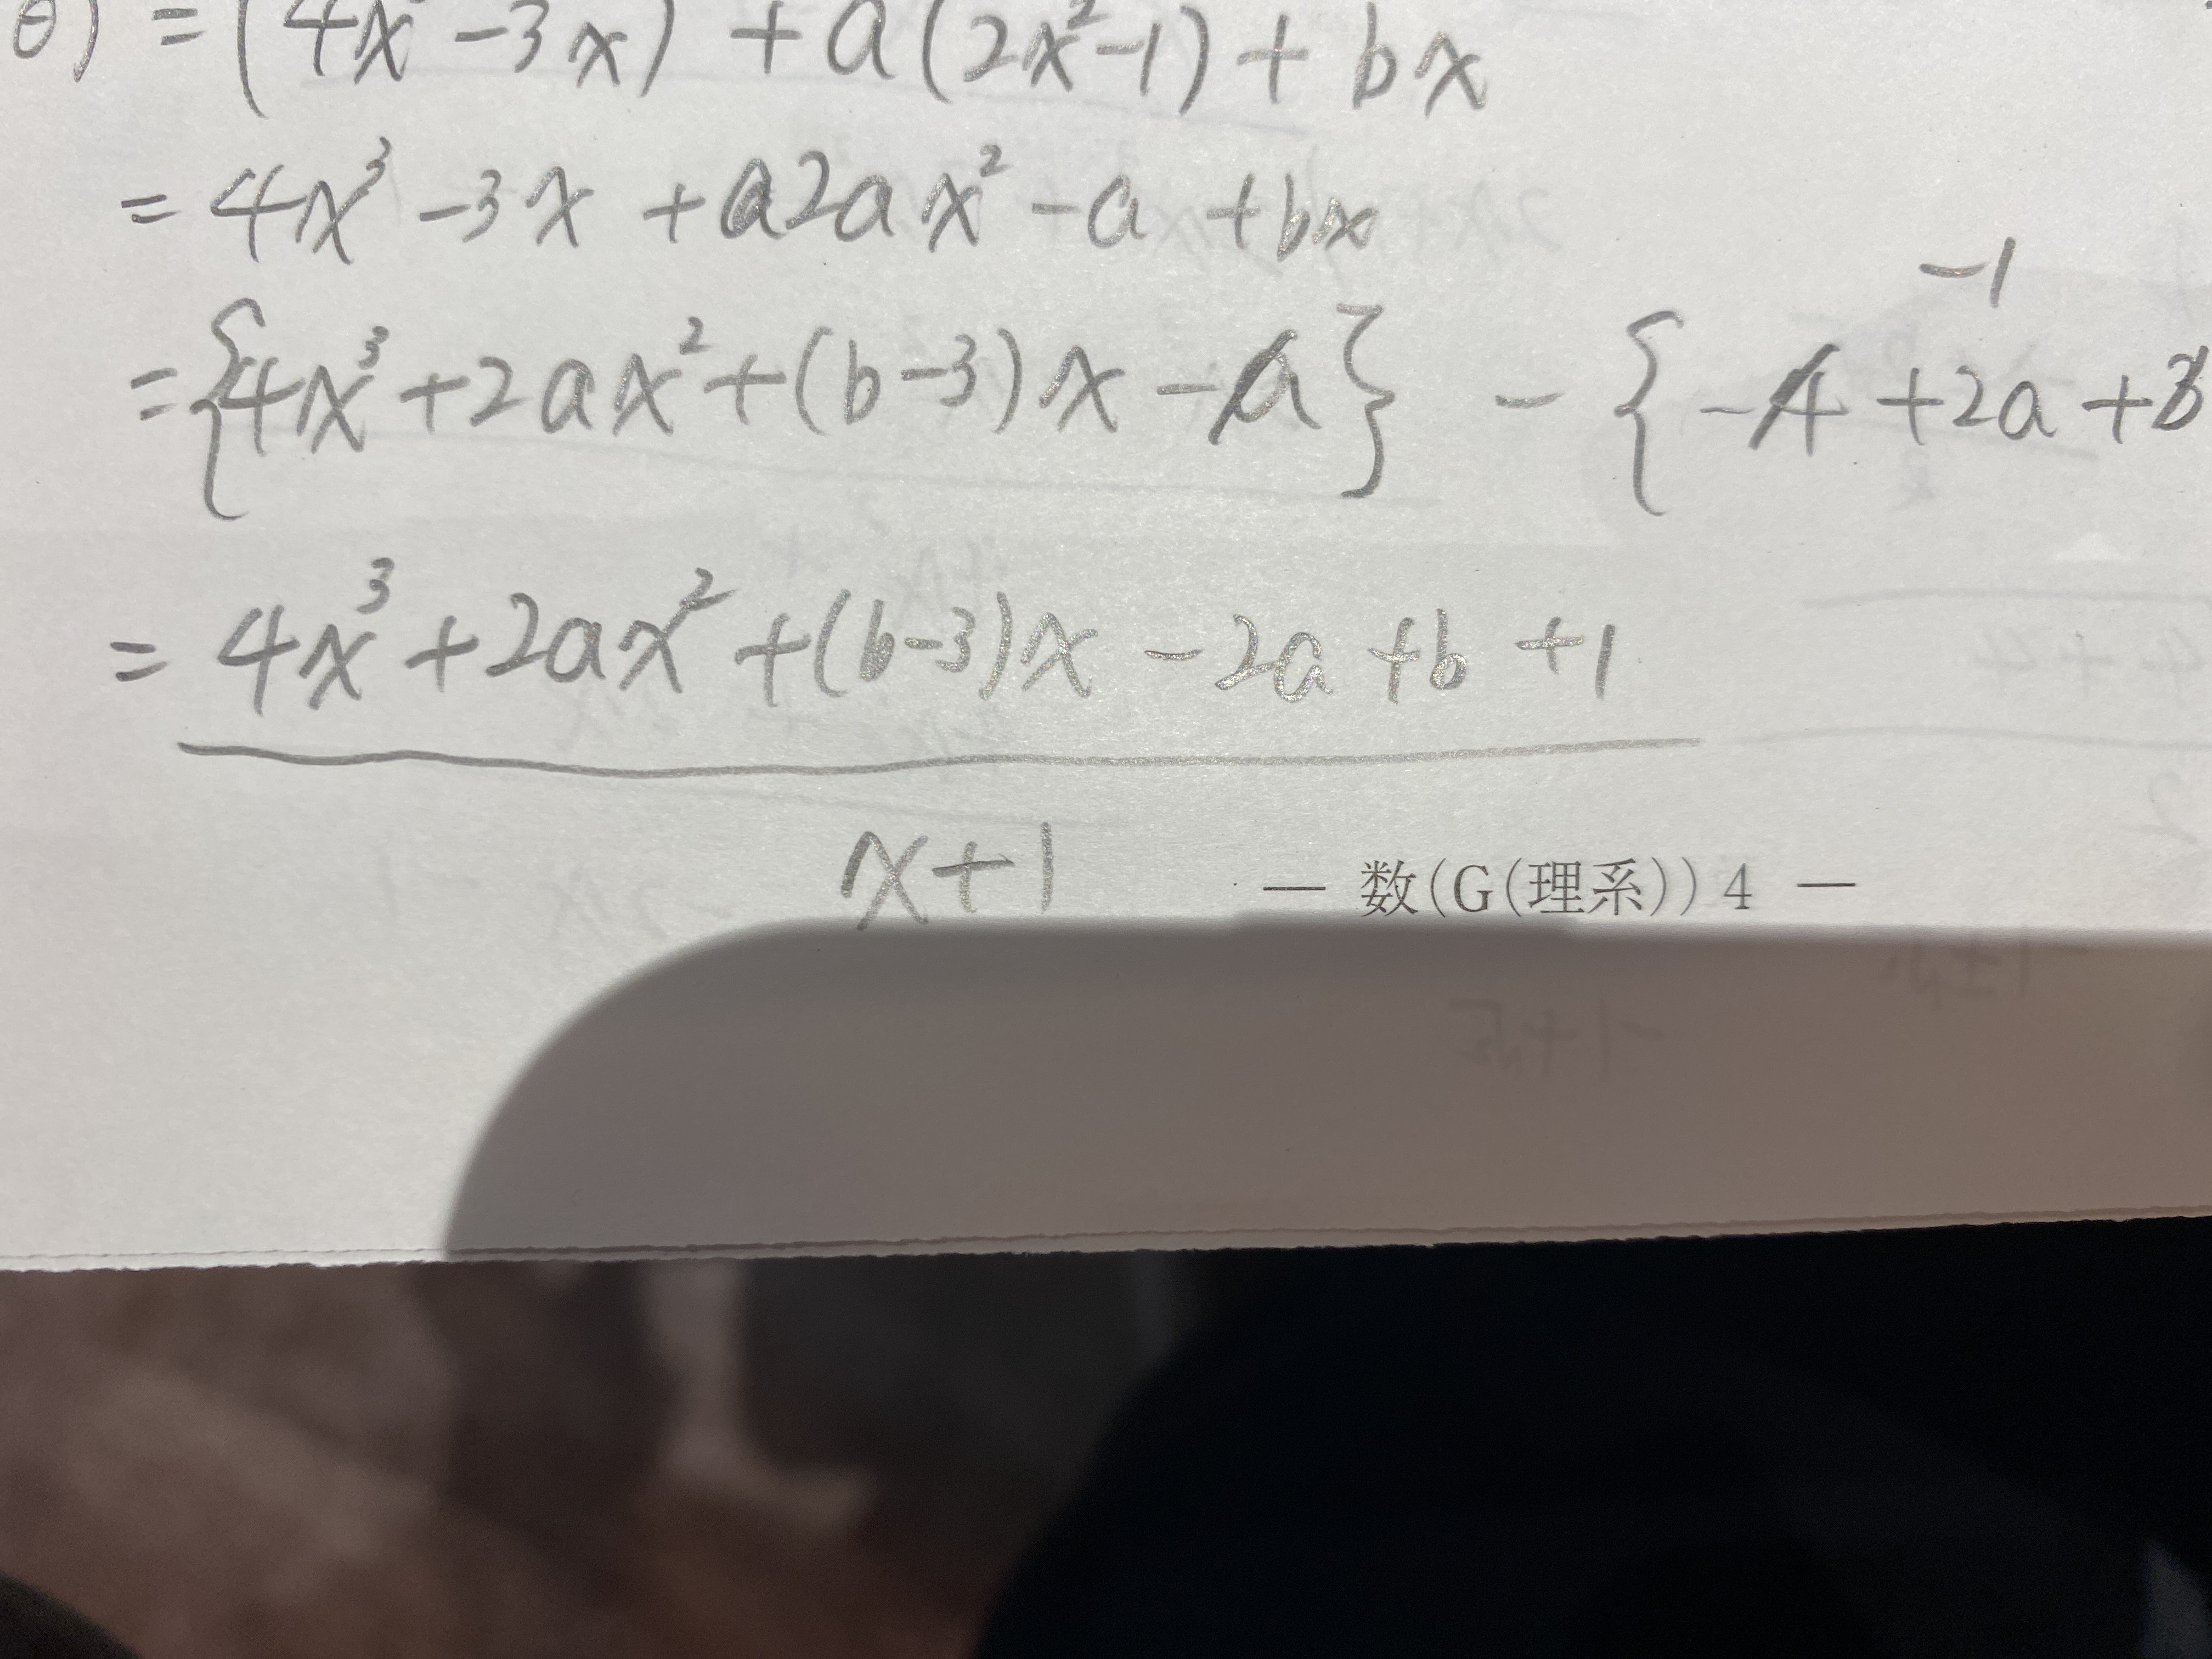 θ) = (4x -3x) + a(2x²-1) + bx
= 4x³ -3x +a2ax² -a +bx
-1
={4x³+2ax²+(b-3)x -a} - { -4 +2a +3
= 4x³+2ax²+(b-3)x -2a +b +1
x+1
— 数(G(理系))4 —